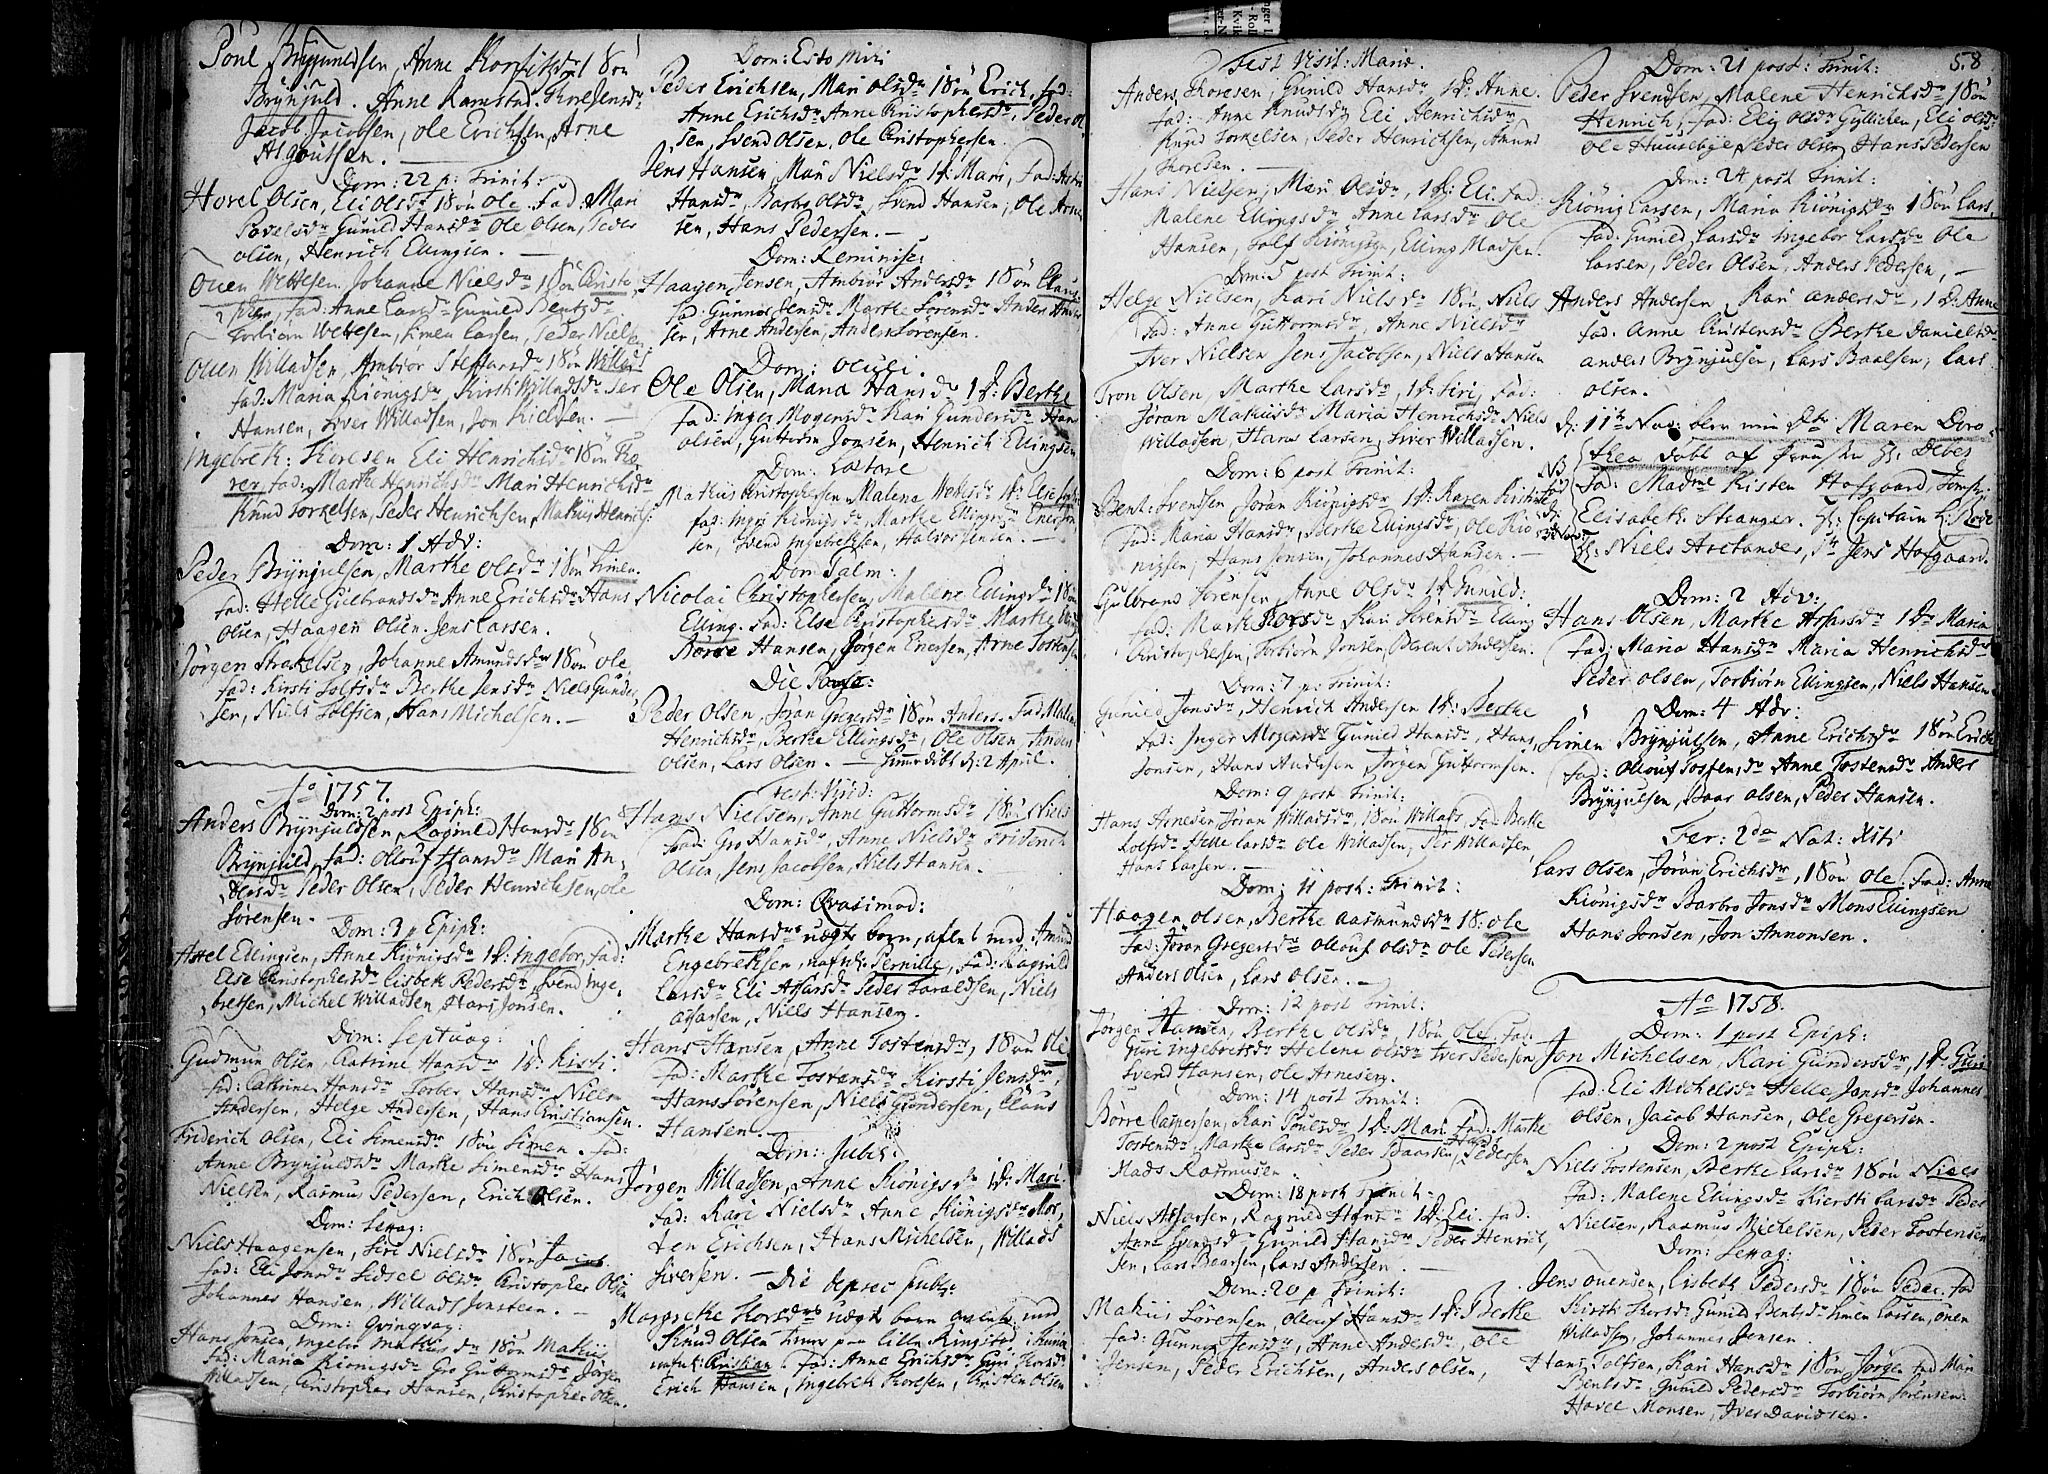 Poul Brynjulfsen, Anne 1 Søn
Brynjuld. Anne Ramstad. Thoresensdr
Jacob Jacobsen, Ole Erichsen, Arne
Asgoutsen.
Dom: 22 p: Trinit:
Hovel Olsen, Eli Olsdr 1 Søn Ole. Fad: Mari
Povelsdr Gunild Hansdr Ole Olsen, Peder
Olsen, Henrich Ellingsen.
Ouen Wettesen, Johanne Nielsdr 1 Søn Christo
pher, fad: Anne Larsdr Gunild Bentsdr
Torbiørn Wettesen, Simen Larsen, Peder Nielsen
Ouen Willadsen, Ambior Steffansdr 1 Søn Willads
fad: Maria Kiönigsdr Kirsti Willadsdr Per
Hansen, Siver Willadsen, Jon Kield­sen.
Ingebret Thoresen Eli Henrichsdr 1 Søn Tho
rer, fad: Marthe Henrichsdr Mari Henrichsdr
Knud Torkelsen, Peder Henrichsen, Mathius Henrichs:
Dom: 1 Adv:
Peder Brynjulsen, Marthe Olsdr 1 Søn Simen.
fad: Helle Gulbrandsdr Anne Erichsdr Hans
Olsen, Haagen Olsen, Jens Larsen.
Jörgen Johanne Amundsdr 1 Søn Ole
fad: Kirsti Tolfsdr Berthe Jensdr Niels Gunder
sen, Niels Tolfsen, Hans Michelsen.
Ao 1757.
Dom: 2 post Epiph:
Anders Brynjuldsen, Ragnild Hansdr 1 Søn
Brynjuld, fad: Olluf Hansdr Mari An
dersdr Peder Olsen, Peder Henrichsen, Ole
Sörensen.
Dom: 3 p Epiph:
Axel Ellingsen, Anne Kiönigsdr 1 D: Ingebor, fad:
Else Christophersdr Lisbeth Pedersdr, Svend Inge
bretsen, Michel Willadsen, Hans Jonsen.
Dom: Septuag:
Gudmun Olsen, Catrine Hansdr 1 D: Kisti.
fad: Cathrine Hansdr Torber Hansdr Niels
Andersen, Helge Andersen, Hans Cristiansen.
Friderich Olsen, Eli Simensdr 1 Søn Simen. fad:
Anne Brynjulsdr Marthe Simensdr Hans
Nielsen, Rasmus Pedersen, Erich Olsen.
Dom: Sexag:
Niels Haagensen, Siri Nielsdr 1 Søn Jacob.
fad: Eli Jonsdr Sidsel Olsdr Christopher Olsen
Johannes Hansen, Willads Jonsen.
Dom: Qvinqvag:
Hans Jonsen, Ingebor Mathisdr 1 Søn Mathis
fad: Maria Kionigsdr Gro Guttormsdr Jörgen
Willadsen, Christopher Hansen, Christopher Olsen.
Dom: Esto Mihi
Peder Erichsen, Mari Olsdr 1 Søn Erich, fad:
Anne Erichsdr Anne Christophersdr, Peder Ol
sen, Svend Olsen, Ole Christophersen.
Jens Hansen, Mari Nielsdr 1 D: Mari, fad:
Hansdr, Barbro Olsdr, Svend Hansen, Ole Arne
sen, Hans Pedersen.
Dom: Reminisc:
Haagen Jensen, Ambiör Andersdr 1 Søn Claus
fad: Gunnor Jensdr Marthe Sörensdr Anders Ander
sen, Arne Andersen, Anders Sorensen.
Dom: Oculi.
Ole Olsen, Maria Hansdr 1 D: Berthe
fad: Inger Mogensdr Kari Gundersdr Hans
Olsen, Guttorm Jonsen, Henrich Ellingsen
Dom: Lætare
Mathis Christophersen, Malena 1 D: Else
fad: Ingri Kionigsdr Marthe Ellingsdr Ener
sen, Svend Ingebretsen, Halvor Jensen.
Dom Palm:
Nicolai Christophersen, Malene Ellingsdr 1 Søn
Elling. fad: Else Christophersdr Marthe
Börre Hansen, Jörgen Enersen, Arne Tostensen
Die
Peder Olsen, Jöran Gregersdr 1 Søn Anders. Fad: Malene
Henrichsdr, Berthe Ellingsdr, Ole Olsen, Anders
Olsen, Lars Olsen. — d: 2 April.
Hans Nielsen, Anne Guttormsdr 1 Søn Niels
fad: Gro Hansdr, Anne Nielsdr Friderich
Olsen, Jens Jacobsen, Niels Hansen.
Dom: Qvasimod:
Marthe Hansdrs uægte barn, aflet med Amund
Engebrethsen, nafnl: Pernille, fad: Ragnild
Larsdr Eli Assarsdr Peder Haraldsen, Niels
Assarsen, Niels Hansen.
Hans Hansen, Anne Tostensdr, 1 Søn Ole
fad: Marthe Tostensdr Kirsti Jensdr,
Hans Sörensen, Niels Gundersen, Claus
Hansen.
Dom: Jubil:
Jörgen Willadsen, Anne Kiönigsdr 1 D: Mari.
fad: Kari Nielsdr Anne Kiönigsdr Mor
ten Erichsen, Hans Michelsen, Willads
Siversen. — Die deprec publ:
Margrethe Thorsdrs uægte barn avlet med
Knud Olsen paa lille Ringstad
nafnl: Christian. fad: Anne Erichsdr Guri Thorsdr
Erich Hansen, Ingebreth Thoresen, Christen Olsen
Fest Visit: Mariæ.
Anders Thoresen, Gunild Hansdr 1 D: Anne.
fad: Anne Knudsdr Eli Henrichsdr
Knud Torkelsen, Peder Henrichsen, Amund
Thoresen.
Hans Nielsen, Mari Olsdr, 1 D: Eli. fad:
Malene Ellingsdr Anne Larsdr Ole
Hansen, Tolf Kiönigsen, Elling Madsen.
Dom: 5 post Trinit:
Helge Nielsen, Kari Nielsdr 1 Søn Niels
fad: Anne Guttormsdr, Anne Nielsdr
Iver Nielsen Jens Jacobsen, Niels Hansen
Tron Olsen, Marthe Larsdr, 1 D: Siri, fad:
Jöran Mathisdr Maria Henrichsdr Niels
Willadsen, Hans Larsen, Siver Willadsen.
Dom: 6 post Trinit:
Bent Svendsen Jöran Kiönigsdr 1 D: Karen
fad: Maria Hansdr, Berthe Ellingsdr, Ole Kiö
nigsen, Hans Jonsen, Johannes Hansen.
Gulbrand Sörensen, Anne Olsdr 1 D: Gunild:
fad: Marthe Kari Sörensdr Elling
Christophersen, Torbiörn Jonsen, Berent Andersen.
Dom: 7 p: Trinit:
Gunild Jonsdr, Henrich Andersen 1 D: Berthe
fad: Inger Mogensdr Gunild Hansdr, Hans
Jonsen, Hans Andersen Jörgen Guttormsen.
Dom: 9 post Trinit:
Hans Arnesen, Jöran Willadsdr, 1 Søn Willads, fad: Berthe
Tolfsdr Helle Larsdr Ole Willadsen, Per Willadsen,
Hans Larsen.
Dom: 11 post: Trinit:
Haagen Olsen, Berthe Aasmundsdr 1 S: Ole
fad: Jöran Gregersdr Olluf Olsdr Ole Pedersen
Anders Olsen, Lars Olsen.
Dom: 12 post Trinit:
Jörgen Hansen, Berthe Olsdr 1 Søn Ole fad:
Guri Ingebretsdr Helene Olsdr Iver Pedersen
Svend Hansen, Ole Arnesen.
Dom: 14 post Trinit:
Börre Caspersen, Kari Poulsdr 1 D: Mari fad: Marthe
Tostensdr Marthe Larsdr Peder Baarsen, Hans Pedersen
Mads Rasmusen.
Dom: 18 post Trinit:
Niels Assarsen, Ragnild Hansdr 1 D: Eli. fad:
Anne Gunild Hansdr Peder Henrich
sen, Lars Baarsen, Lars Andersen.
Dom: 20 p Trinit:
Mathis Sörensen Olluf Hansdr 1 D: Berthe
fad: Gunnor Jensdr, Anne Andersdr, Ole
Jensen, Peder Erichsen, Anders Olsen,
58
Dom: 21 post: Trinit:
Peder Svendsen, Malene Henrichsdr 1 Søn
Henrich, fad: Elie Olsdr Gyllichen, Eli Olsdr
Ole Huusebye, Peder Olsen, Hans Pedersen
Dom: 24 post Trinit:
Kiönig Larsen, Maria Kiönigsdr 1 Søn Lars,
fad: Gunild Larsdr Ingebor Larsdr Ole
Larsen, Peder Olsen, Anders Pedersen,
Anders Andersen, Kari Andersdr, 1 D: Anne
fad. Anne Christensdr Berthe Danielsdr
Anders Brynjulsen, Lars Baalsen, Lars
Olsen.
d: 11te Nov: blev min Dtr Maren Doro
thea Döbt af Provsten Hr: Olbez
fad: Madme Kisten Hofgaard, Jomfr:
Elisabeth Stranger. Hr: Capitain
Hr: Niels Arctander, Sr Jens Hofgaard.
Dom: 2 Adv:
Hans Olsen, Marthe Assarsdr 1 D: Maria
fad: Maria Hansdr Maria Henrichsdr
Peder Olsen, Torbiörn Ellingsen, Niels Hansen
Dom: 4 Adv:
Simen Brynjulsen, Anne Erichsdr 1 Søn Erich
fad: Ollouf Tostensdr Anne Tostensdr Anders
Brynjulsen, Baar Olsen, Peder Hansen.
Fer: 2da Nat: Xsti
Lars Olsen, Jöran Erichsdr, 1 Søn Ole, fad: Anne
Kiönigsdr Barbro Jonsdr Mons Ellingsen
Hans Jonsen, Jon Annonsen.
Ao 1758.
Dom: 1 post Epiph:
Jon Michelsen, Kari Gundersdr, 1 D: Guri
fad: Eli Michelsdr Helle Jonsdr Johannes
Olsen, Jacob Hansen, Ole Gregersen.
Dom: 2 post Epiph:
Niels Tostensen, Berthe Larsdr 1 Søn Niels
fad: Malene Ellingsdr Kiersti Larsdr Peder
Nielsen, Rasmus Mickelsen, Peder Tostensen
Dom: Sexag:
Jens Ouensen, Lisbeth Pedersdr 1 Søn Peder. fad
Kirsti Thorsdr Gunild Bentsdr Simen Larsen, Ouen
Willadsen, Johannes Jensen.
Hans Tolfsen, Kari Hansdr 1 Søn Jörgen fad Mari
Bentsdr, Gunild Pedersdr Torbiörn Sorensen,
Havel Monsen, Iver Davidsen.